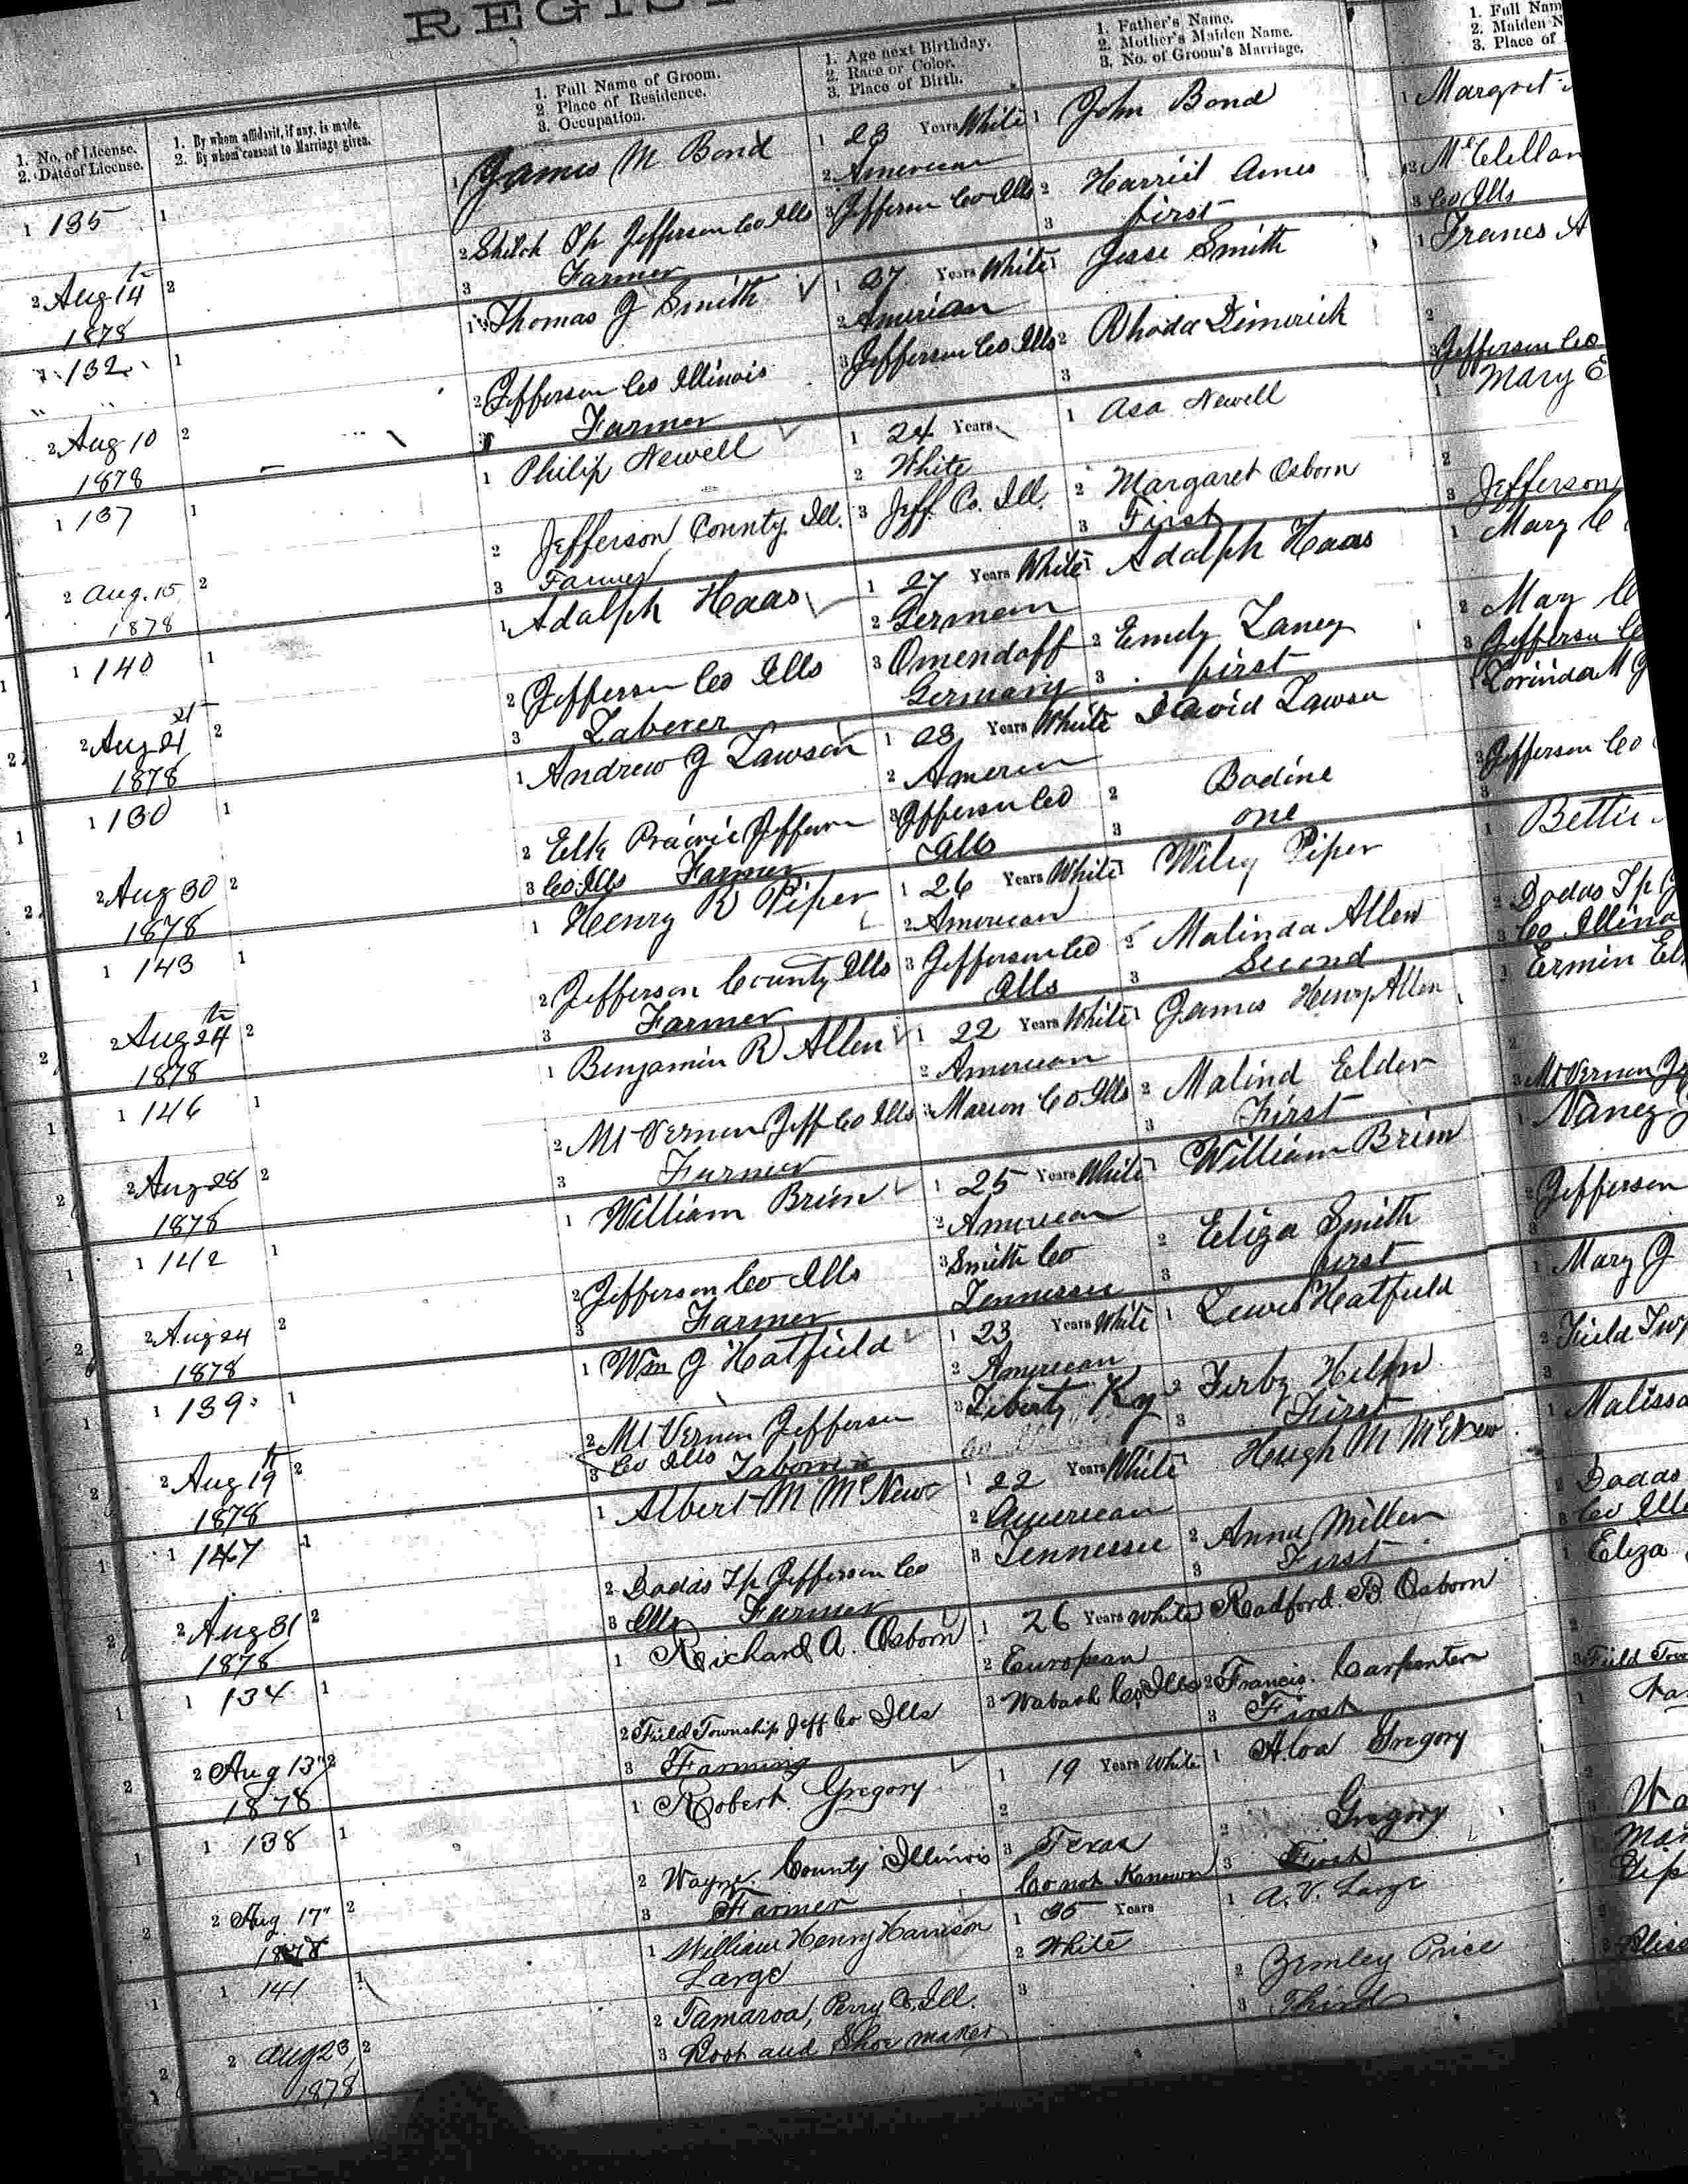 REGIS
1. No. of License.
2. Date of License.
1. By whom affidavit, if any, is made.
2. By whom consent to Marriage given.
1. Full Name of Groom.
2. Place of Residence.
3. Occupation.
1. Age next Birthday.
2. Race or Color.
3. Place of Birth.
1. Father's Name.
2. Mother's Maiden Name.
3. No. of Groom's Marriage.
1. Full Nam
2. Maiden N
3. Place of
1 135
2 Aug 14th
1878
1 James M Bond
2 Shiloh Tp Jefferson Co Ills
3 Farmer
1 23 Years White
2 American
3 Jefferson Co Ills
1 John Bond
2 Harriet Ames
3 first
1 Margret
2 McClellan
3 Co Ills
1 132
2 Aug 10
1878
1 Thomas J Smith
2 Jefferson Co Illinois
3 Farmer
1 27 Years White
2 American
3 Jefferson Co Ills
1 Jesse Smith
2 Rhoda Dimerick
3
1 Franes A
2
3 Jefferson Co
1 137
2 Aug. 15
1878
1 Philip Newell
2 Jefferson County Ill.
3 Farmer
1 24 Years
2 White
3 Jeff. Co. Ill.
1 Asa Newell
2 Margaret Osborn
3 First
1 Mary E
2
3 Jefferson
1 140
2 Aug 21
1878
1 Adolph Haas
2 Jefferson Co Ills
3 Laborer
1 27 Years White
2 German
3 Omendoff
Germany
1 Adolph Haas
2 Emely Laney
3 first
1 Mary C
2 Mary C
3 Jefferson Co
1 130
2 Aug 30
1878
1 Andrew J Lawson
2 Elk Prairie Jefferson
3 Co Ills Farmer
1 23 Years White
2 American
3 Jefferson Co
Ills
1 David Lawson
2 Bodine
3 one
1 Lorinda M J
2 Jefferson Co
3
1 143
2 Aug 24th
1878
1 Henry R Piper
2 Jefferson County Ills
3 Farmer
1 26 Years White
2 American
3 Jefferson Co
Ills
1 Wiley Piper
2 Malinda Allen
3 Second
1 Bettie
2 Dodds Tp
3 Co Illino
1 146
2 Aug 28
1878
1 Benjamin R Allen
2 Mt Vernon Jeff Co Ills
3 Farmer
1 22 Years White
2 American
3 Marion Co Ills
1 James Henry Allen
2 Malind Elder
3 First
1 Ermin El
2
3 Mt Vernon
1 142
2 Aug 24
1878
1 William Brim
2 Jefferson Co Ills
3 Farmer
1 25 Years White
2 American
3 Smith Co
Tennessee
1 William Brim
2 Eliza Smith
3 first
1 Nancy J
2 Jefferson
3
1 139
2 Aug 19
1878
1 Wm J Hatfield
2 Mt Vernon Jefferson
3 Co Ills Laborer
1 23 Years White
2 American
3 Liberty Ky
1 Lewis Hatfield
2 Ferby Helm
3 First
1 Mary J
2 Field Twp
3
1 147
2 Aug 31
1878
1 Albert M McNew
2 Dodds Tp Jefferson Co
3 Ills Farmer
1 22 Years White
2 American
3 Tennessee
1 Hugh M McNew
2 Anna Miller
3 First
1 Malissa
2 Dodds
3 Co Ills
1 134
2 Aug 13"
1878
1 Richard A. Osborn
2 Field Township Jeff Co Ills
3 Farming
1 26 Years White
2 European
3 Wabash Co, Ills
1 Radford. B. Osborn
2 Francis. Carpenter
3 First
1 Eliza
2
3 Field Tow
1 138
2 Aug. 17"
1878
1 Robert. Gregory
2 Wayne. County Illinois
3 Farmer
1 19 Years White
2
3 Texas
Co not Known
1 Gregory
2 Gregory
3 First
1 141
2 Aug 23,
1878
1 William Henry Harrison
Large
2 Tamaroa, Perry Co, Ill.
3 Boot and Shoe maker
1 35 Years
2 White
3
1 A. V. Large
2 Price
3 Third